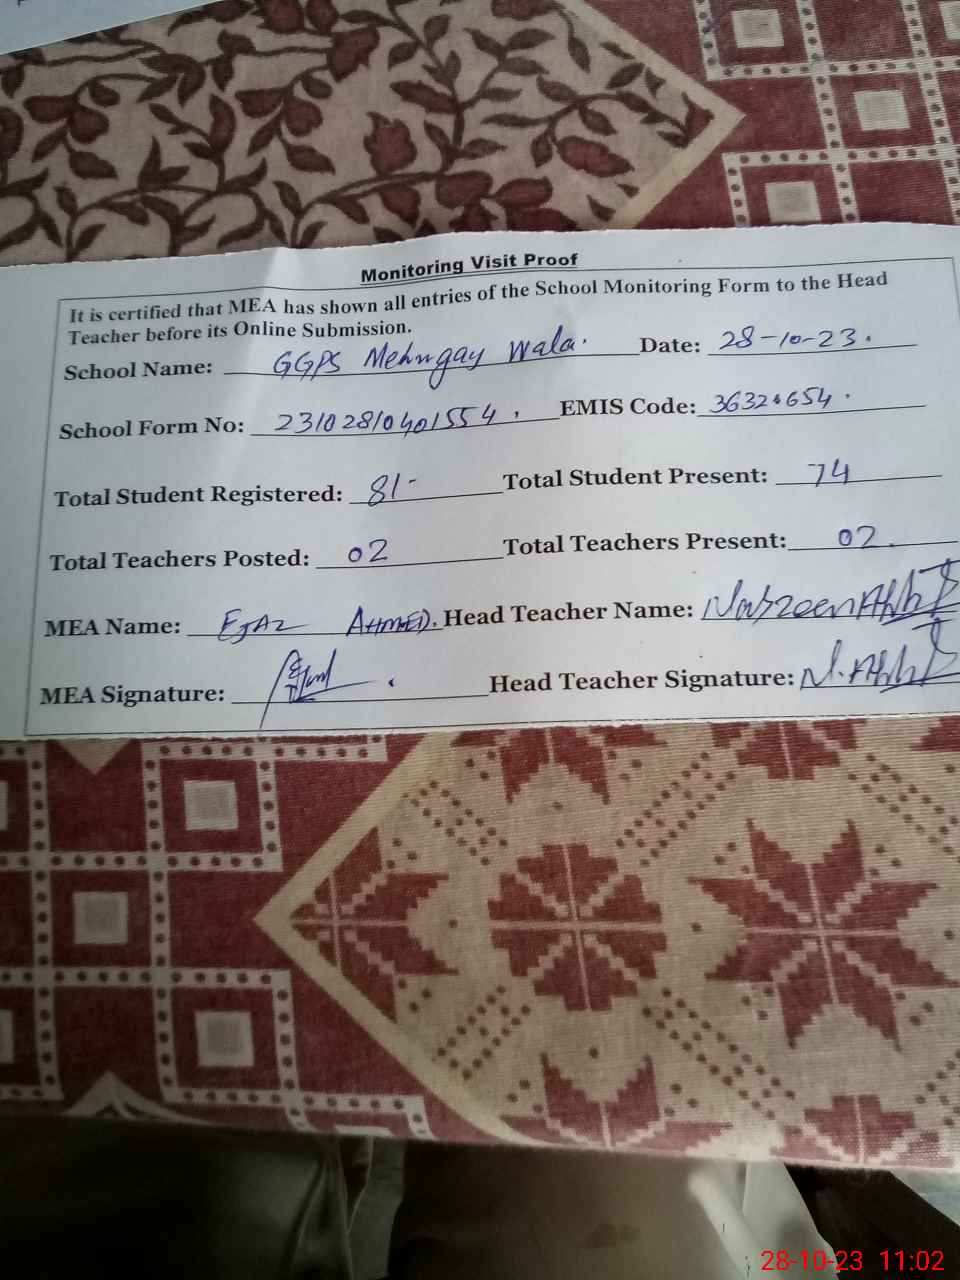 Monitoring Visit Proof
It is certified that MEA has shown all entries of the School Monitoring Form to the Head
Teacher before its Online Submission.
School Name: GGPS Mehngay Wala. Date: 28-10-23.
School Form No: 23102810401554, EMIS Code: 36320654.
Total Student Registered: 81- Total Student Present: 74
Total Teachers Posted: 02 Total Teachers Present: 02.
MEA Name: EJAZ AHMED. Head Teacher Name: Nasreen
MEA Signature: Head Teacher Signature: N.
28-10-23 11:02